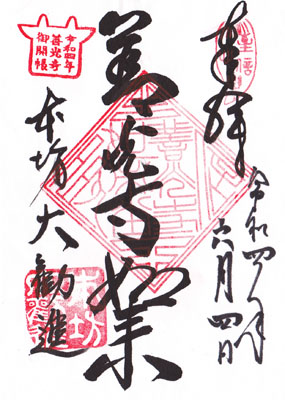 奉拝
令和四年
六月四日
善光寺如来
本坊大勧進
令和四年
善光寺
御開帳